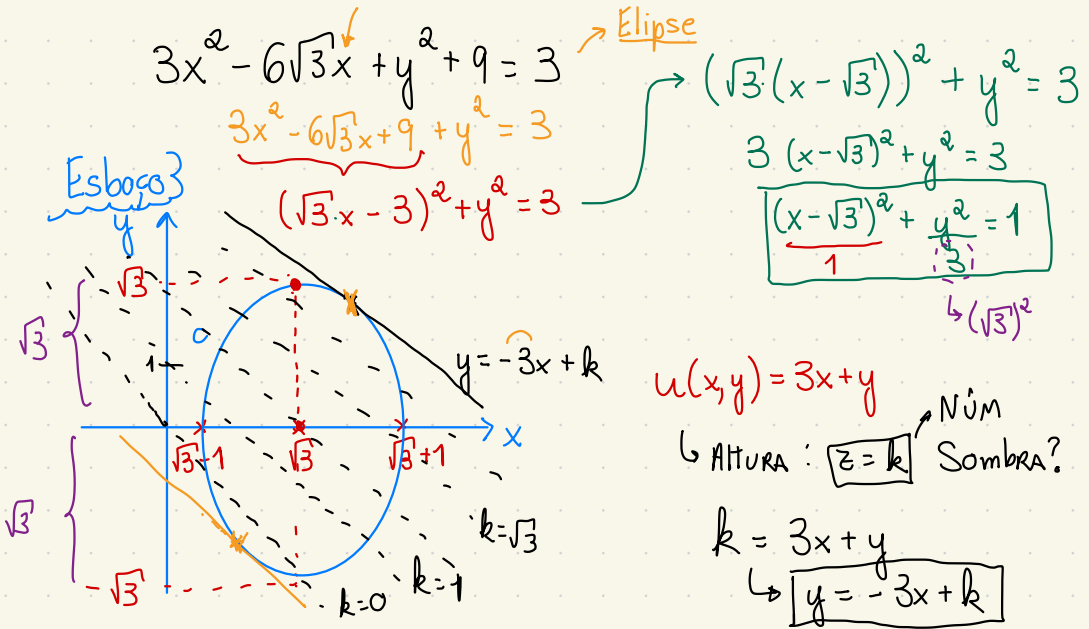 3x² - 6√3x + y² + 9 = 3
Elipse
3x² - 6√3x + 9 + y² = 3
(√3·x - 3)² + y² = 3
(√3·(x - √3))² + y² = 3
3 (x - √3)² + y² = 3
(x - √3)² + y² = 1
1
3
(√3)²
Esboço 3
y
√3
√3
0
1
y = -3x + k
√3-1
√3
√3+1
x
√3
-√3
k=√3
k=1
k=0
u(x,y) = 3x + y
ALTURA : z = k
NÚM
SOMBRA?
k = 3x + y
y = -3x + k